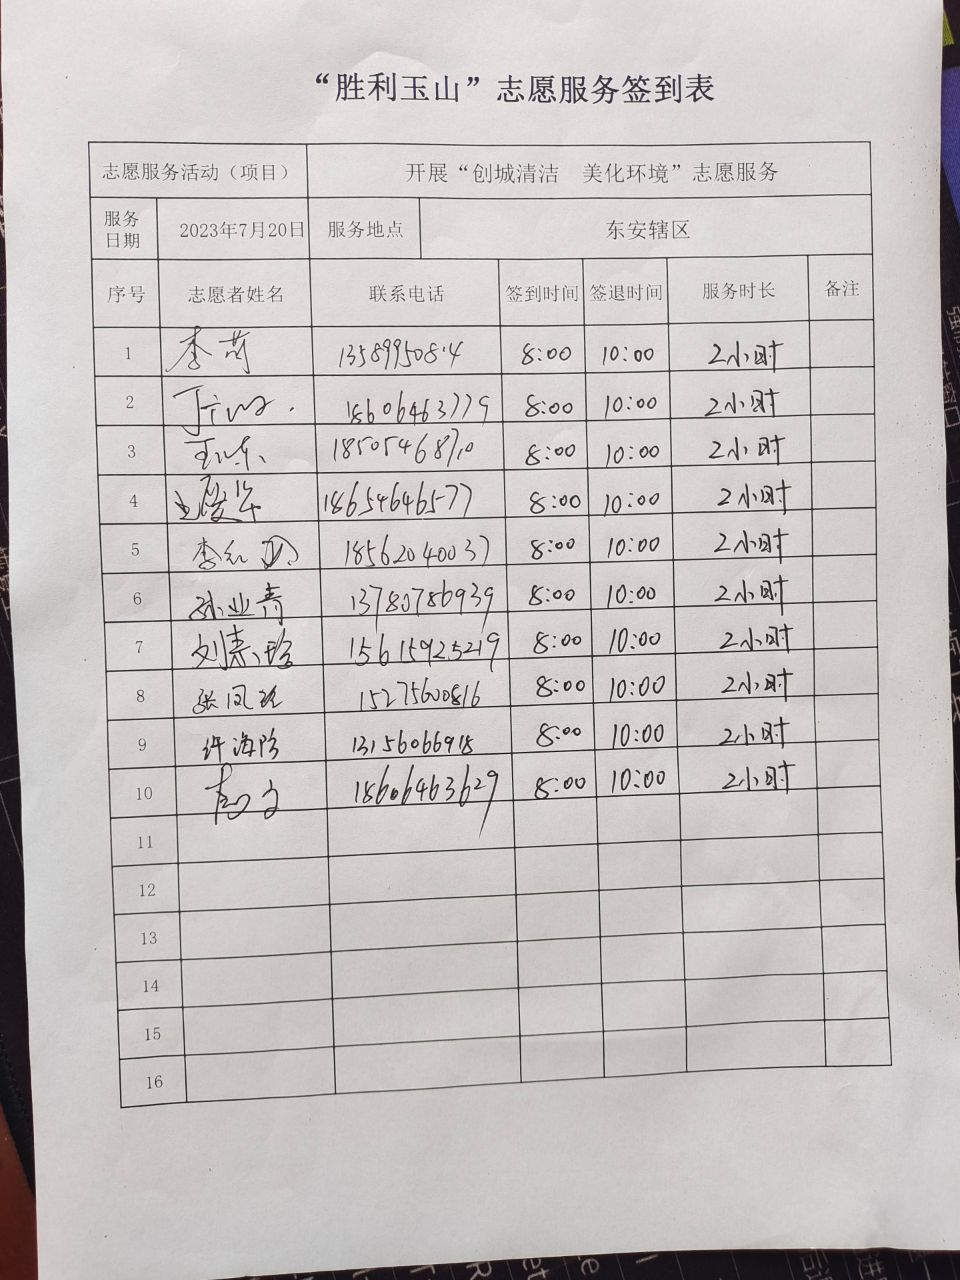 “胜利玉山”志愿服务签到表
志愿服务活动（项目） 开展“创城清洁 美化环境”志愿服务
服务日期 2023年7月20日 服务地点 东安辖区
序号 志愿者姓名 联系电话 签到时间 签退时间 服务时长 备注
1 8:00 10:00 2小时
2 18606463779 8:00 10:00 2小时
3 8:00 10:00 2小时
4 18654646577 8:00 10:00 2小时
5 18562040037 8:00 10:00 2小时
6 孙业青 13780786939 8:00 10:00 2小时
7 15615925219 8:00 10:00 2小时
8 15275600816 8:00 10:00 2小时
9 许海 13156066918 8:00 10:00 2小时
10 18606463629 8:00 10:00 2小时
11
12
13
14
15
16